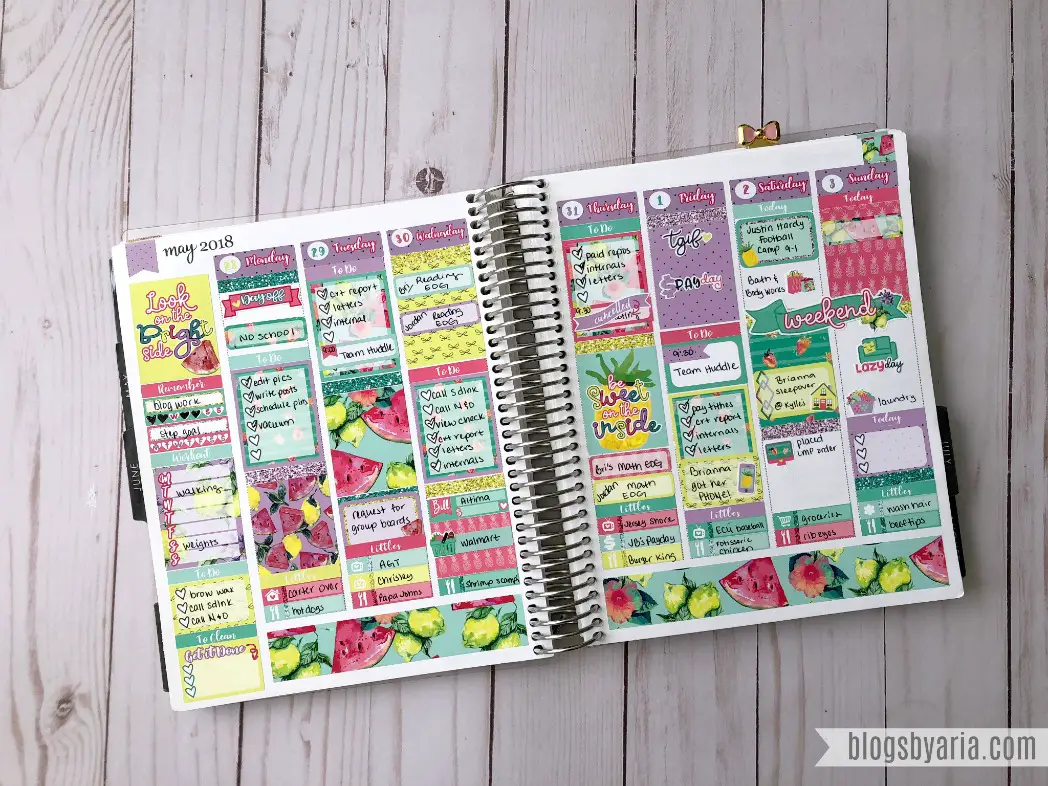 may 2018
Look
on the
Bright
side
Remember
blog work
Step goal
Workout
M
T
W
T
F
S
S
walking
weights
To Do
brow wax
call SdInk
call N&D
To Clean
Get it Done
Monday
Day off
NO SCHOOL
To Do
edit pics
write posts
schedule pins
vacuum
Littles
Carter over
hotdogs
29 Tuesday
To Do
crt report
letters
internal
Team Huddle
request for
group boards
Littles
AGT
Chrisley
Papa Johns
30 Wednesday
Reading
EOG
Jordan Reading
EOG
To Do
call SdInk
call N&D
view check
crt report
letters
internals
Bill
Altima
$
walmart
Shrimp scampi
31 Thursday
To Do
paid repos
internals
letters
9:30
cancelled
be
Sweet
on the
inside
Bri's Math EOG
Jordan math
EOG
Littles
Jersey Shore
JB's Payday
Burger King
1 Friday
tgif
PAYday
To Do
9:30
Team Huddle
pay tithes
crt report
internals
letters
Brianna
got her
PHONE!
Littles
ECU baseball
rotisserie
chicken
2 Saturday
Today
Justin Hardy
Football
Camp 9-1
Bath &
Body Works
weekend
Brianna
sleepover
@ Kylie's
placed
LMP order
Littles
groceries
ribeyes
3 Sunday
Today
LAZYday
laundry
Today
Littles
wash hair
beef tips
JUNE
JULY
blogsbyaria.com